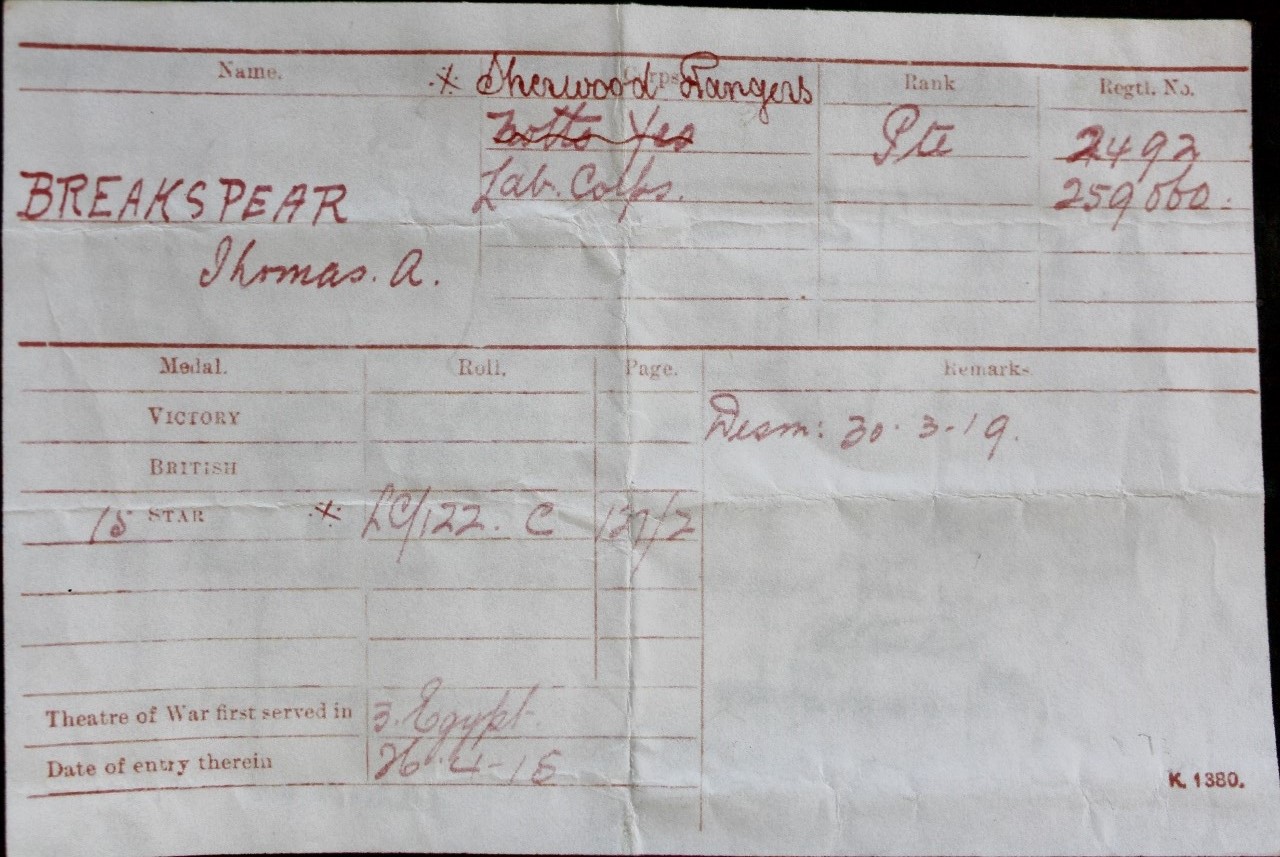 Name. Corps Rank Regtl. No.
·×· Sherwood Rangers
Notts Yeo Pte 2492
Lab. Corps. 259060.
BREAKSPEAR
Thomas. A.
Medal. Roll. Page. Remarks
VICTORY Disem: 30.3.19.
BRITISH
15 STAR ·×· LC/122. C 137/2
Theatre of War first served in 3. Egypt.
Date of entry therein 26.4.15
K. 1380.